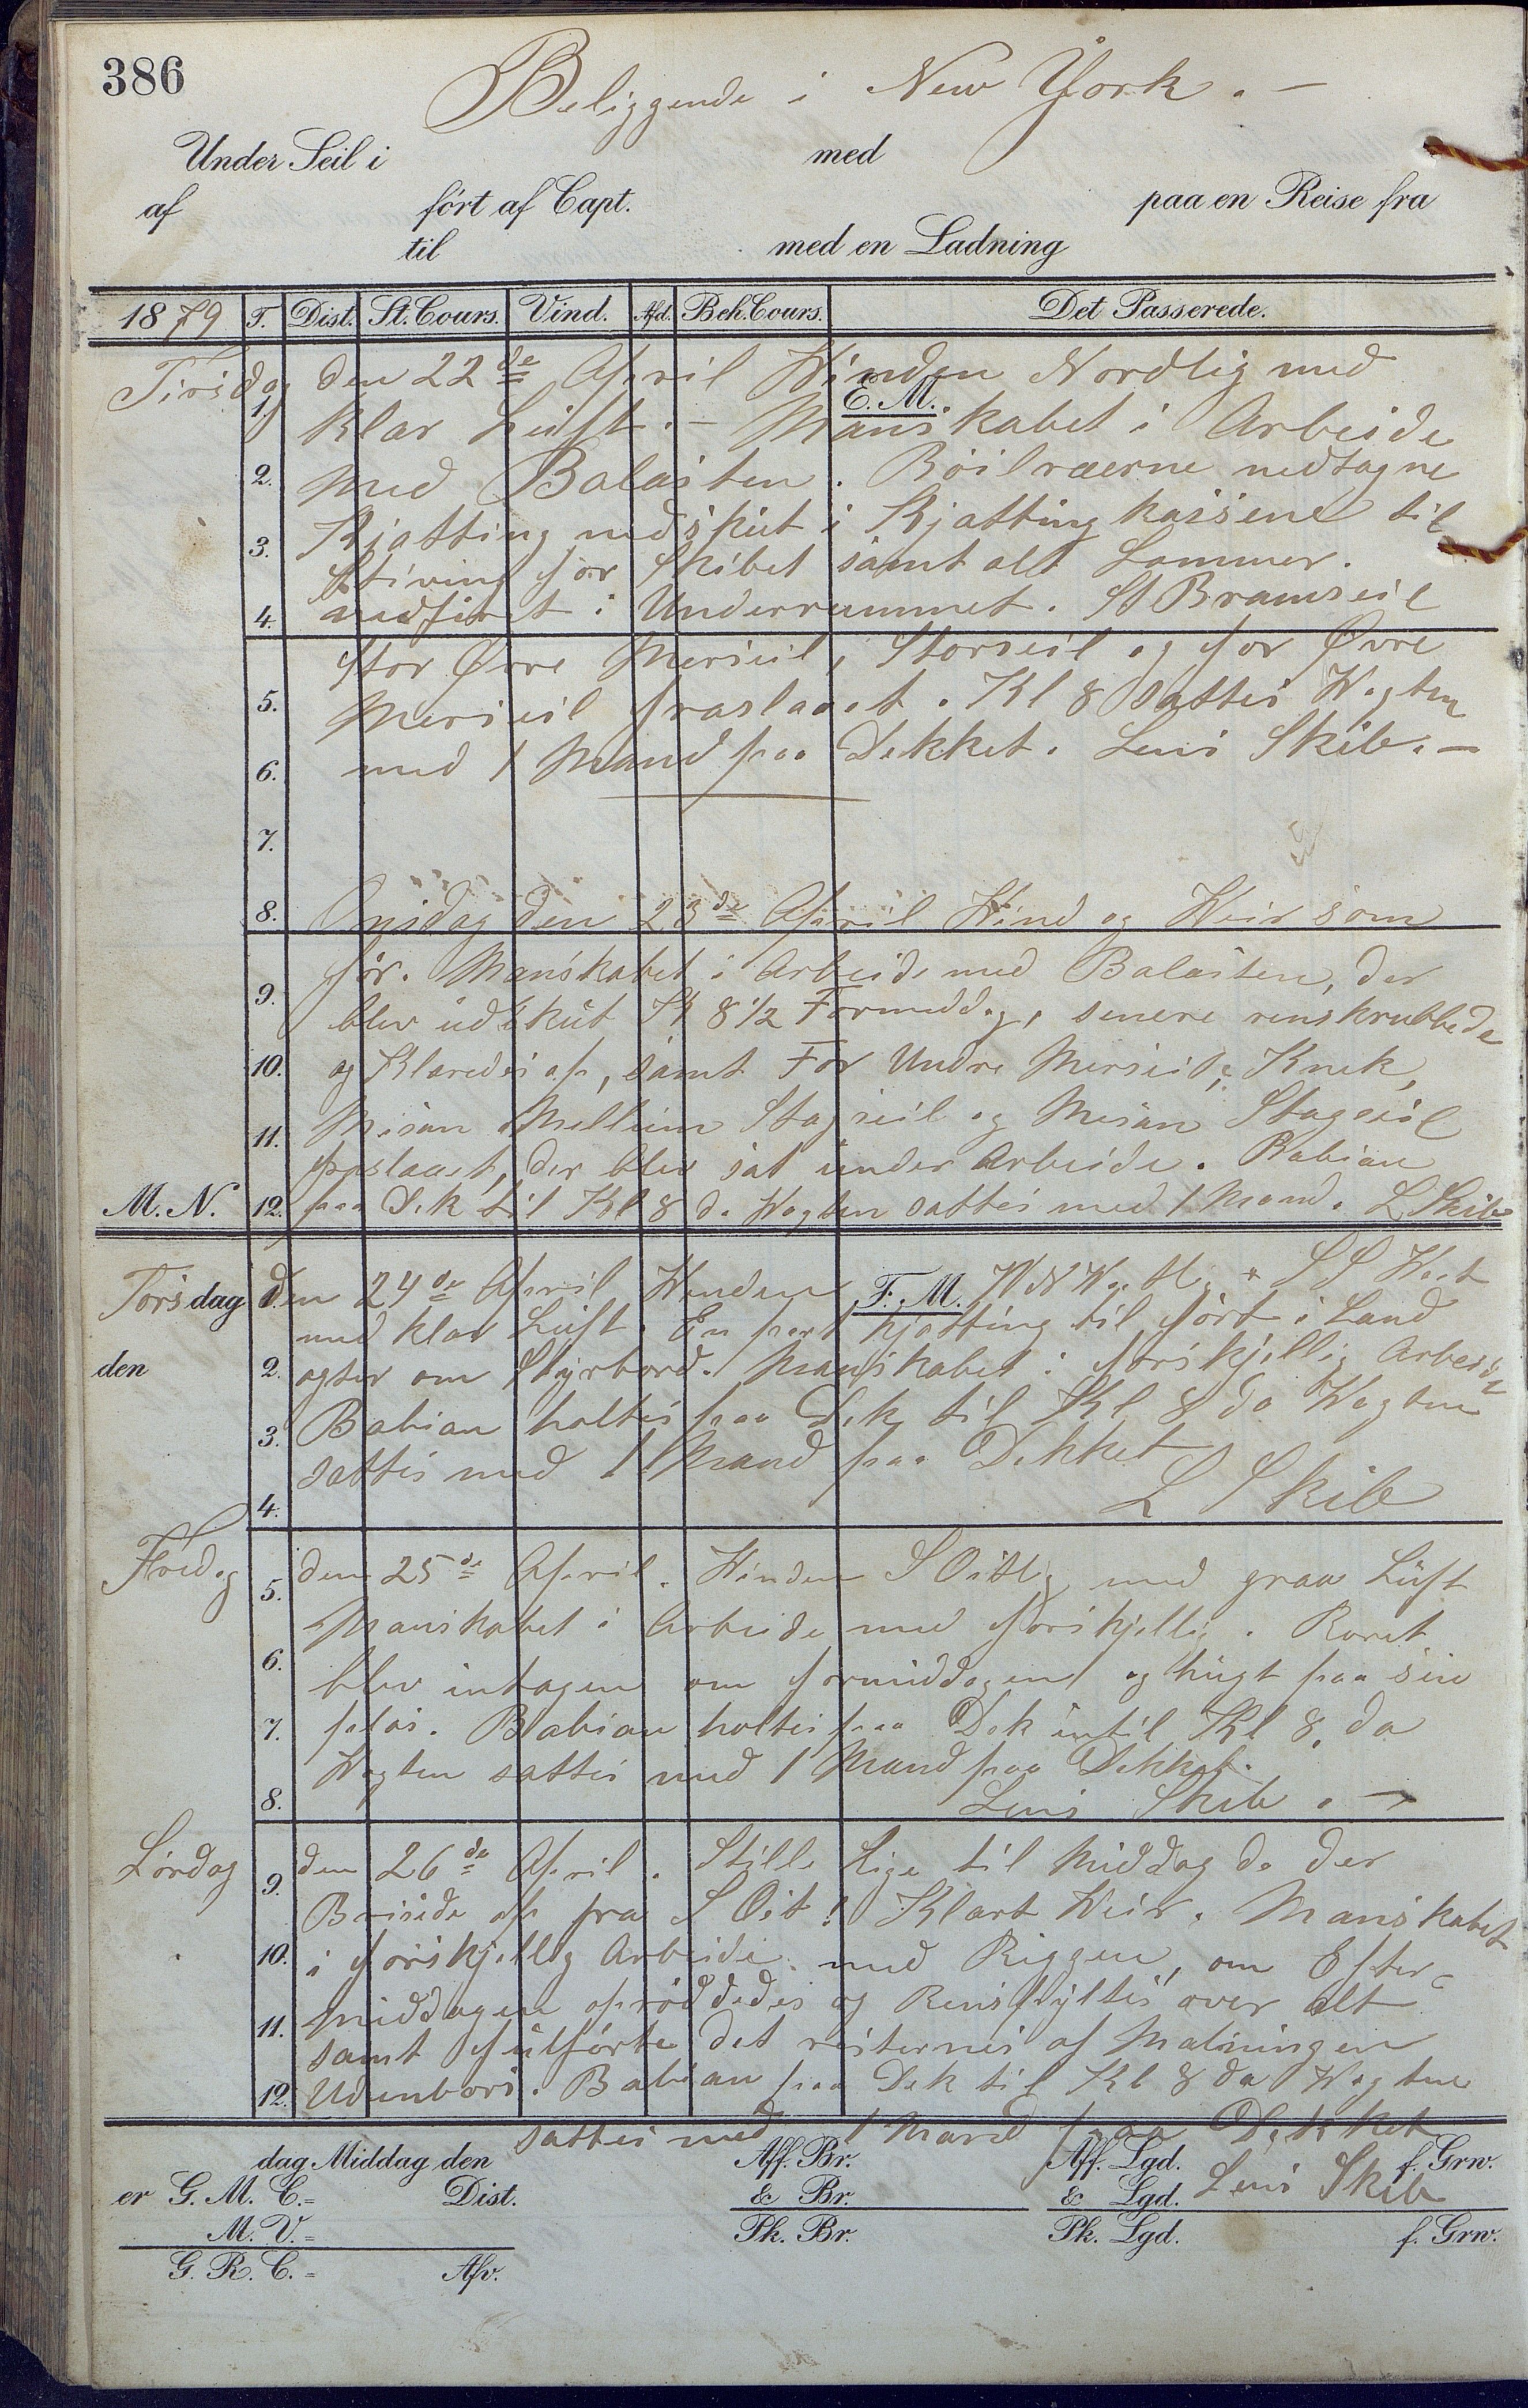 386
Beliggende i New York. –
Under Seil i med
af ført af Capt. paa en Reise fra
til med en Ladning
1879 T. Dist. St. Cours. Vind. Afd. Beh. Cours. Det Passerede.
Tirsdag den 22de April Vinden Nordlig med
E. M.
1. klar Luft. – Manskabet i Arbeide
2. med Balasten. Röilræerne nedtagne
3. Kjætting nedskut i Kjættingkassene til
Stiving for Skibet samt alt Lommer.
4. nedfiret i Underrummet. St Bramseil
Stor Øvre Merseil, Storseil og for Øvre
5. Merseil fraslaaet. Kl 8 sattes Wagten
6. med 1 Mand paa Dekket. Lens Skib. –
7.
8. Onsdag den 23de April Wind og Weir som
för. Manskabet i Arbeide med Balasten, der
9. blev udskut Kl 8 1/2 Formeddag, senere renskrubbede
10. og Klaredes op, samt For Undre Merseil, Knek,
11. Misan Mellem Stagseil og Mesan Stagseil
fraslaaet, der blev sat under Arbeide. Babian
M. N. 12. paa Dek til Kl 8 da Wagten sattes med 1 Mand. L Skib
Torsdag den 24de April Winden F. M. WNWestlig * SS West
1. med klar Luft. En part kjætting til fört i Land
den 2. agter om Styrbord. Manskabet i forskjellig Arbeide
3. Babian holtes paa Dek til Kl 8 da Wagten
sattes med 1 Mand paa Dekket
4. L Skib
Fredag den 25de April. Winden SOstlig med graa Luft
5. Manskabet i Arbeide med forskjellig. Roret
6. blev intagen om formiddagen og hugt paa sin
7. plas. Babian holtes paa Dek intil Kl 8, da
Wagten sattes med 1 Mand paa Dekket.
8. Lens Skib. –
Lördag den 26de April. Stille lige til Middag da der
9. Brisede op fra S Ost. Klart Weir. Manskabet
10. i forskjellig Arbeide med Riggen, om Efter-
11. middagen opröddedes og Renspyltes over alt
samt fulförte det resternes af Malningen
12. Udenbors. Babian paa Dek til Kl 8 da Wagten
sattes med 1 Mand paa Dekket
dag Middag den Aff. Br. Aff. Lgd. f. Grw.
Lens Skib
er G. M. C.= Dist. & Br. & Lgd.
M. V.= Pk. Br. Pk. Lgd. f. Grw.
G. R. C.= Afv.